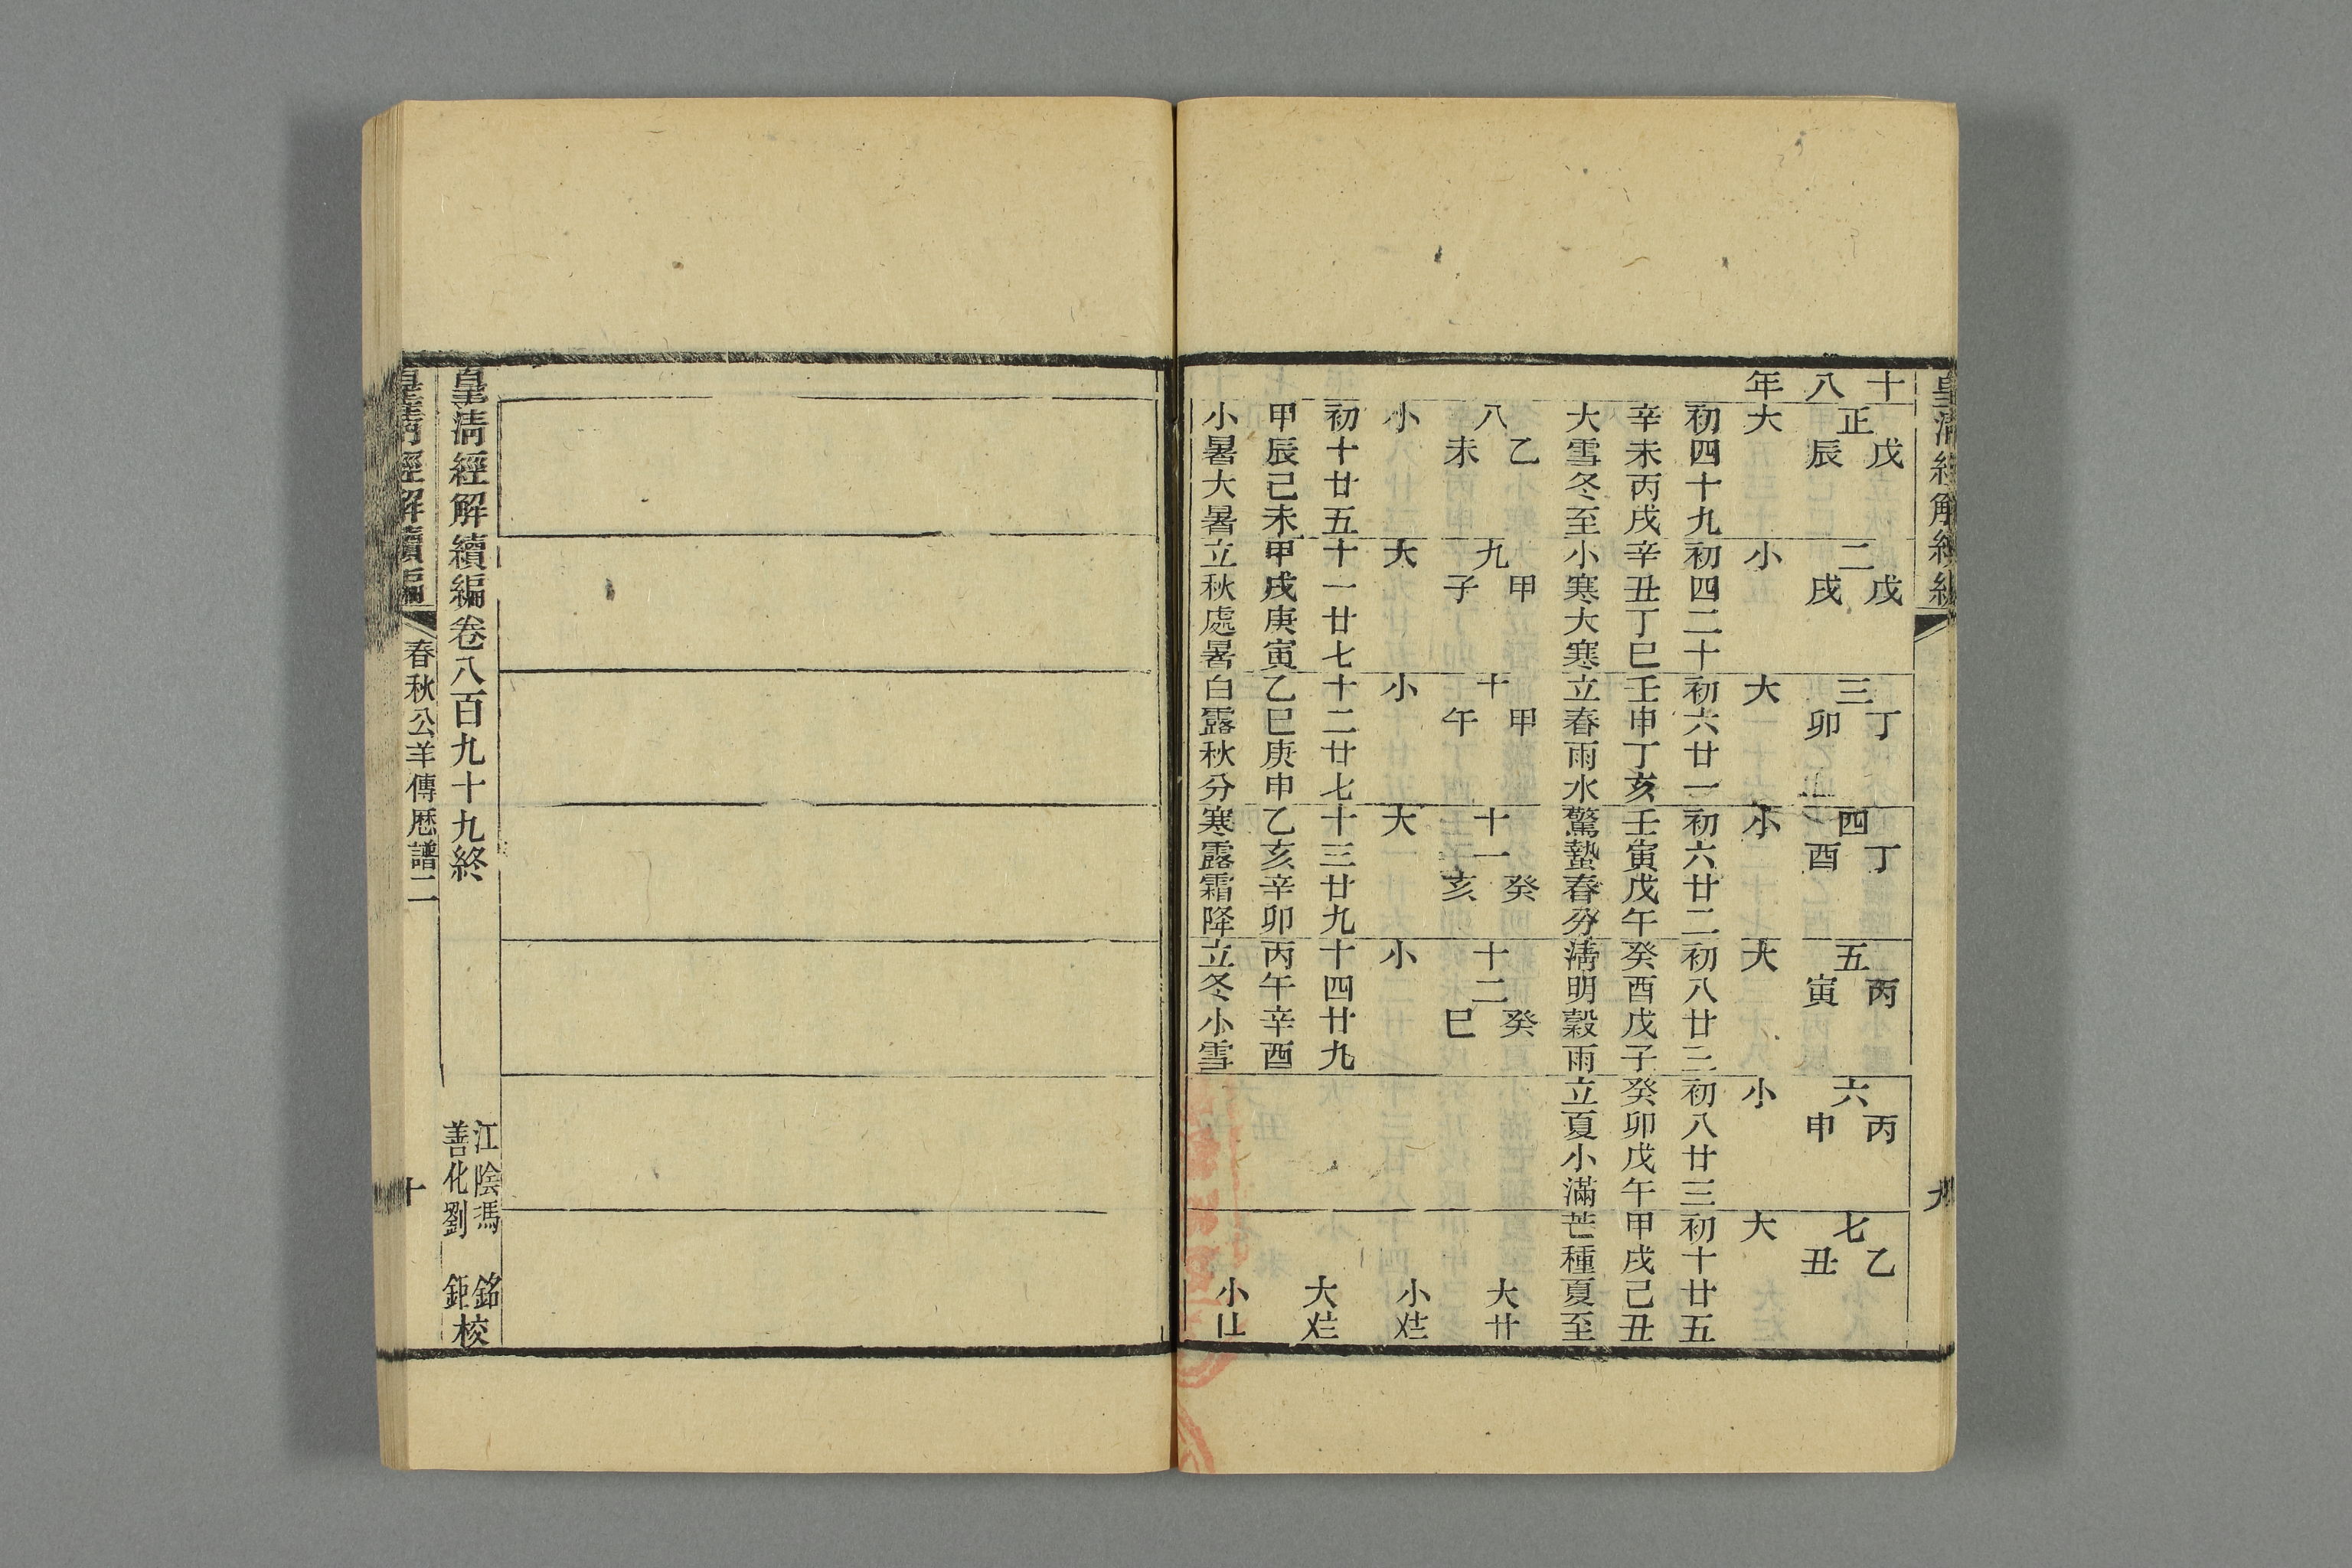 皇清經解續編
九
十八年
正
戊辰
大
初四十九
辛未丙戌
大雪冬至
二
戊戌
小
初四二十
辛丑丁巳
小寒大寒
三
丁卯
大
初六廿一
壬申丁亥
立春雨水
四
丁酉
小
初六廿二
壬寅戊午
驚蟄春分
五
丙寅
大
初八廿三
癸酉戊子
清明穀雨
六
丙申
小
初八廿三
癸卯戊午
立夏小滿
七
乙丑
大
初十廿五
甲戌己丑
芒種夏至
八
乙未
小
初十廿五
甲辰己未
小暑大暑
九
甲子
大
十一廿七
甲戌庚寅
立秋處暑
十
甲午
小
十二廿七
乙巳庚申
白露秋分
十一
癸亥
大
十三廿九
乙亥辛卯
寒露霜降
十二
癸巳
小
十四廿九
丙午辛酉
立冬小雪
大廿
小
大
小
皇清經解續編卷八百九十九終
江陰馮銘
善化劉鉅校
皇清經解續編
春秋公羊傳厤譜二
十